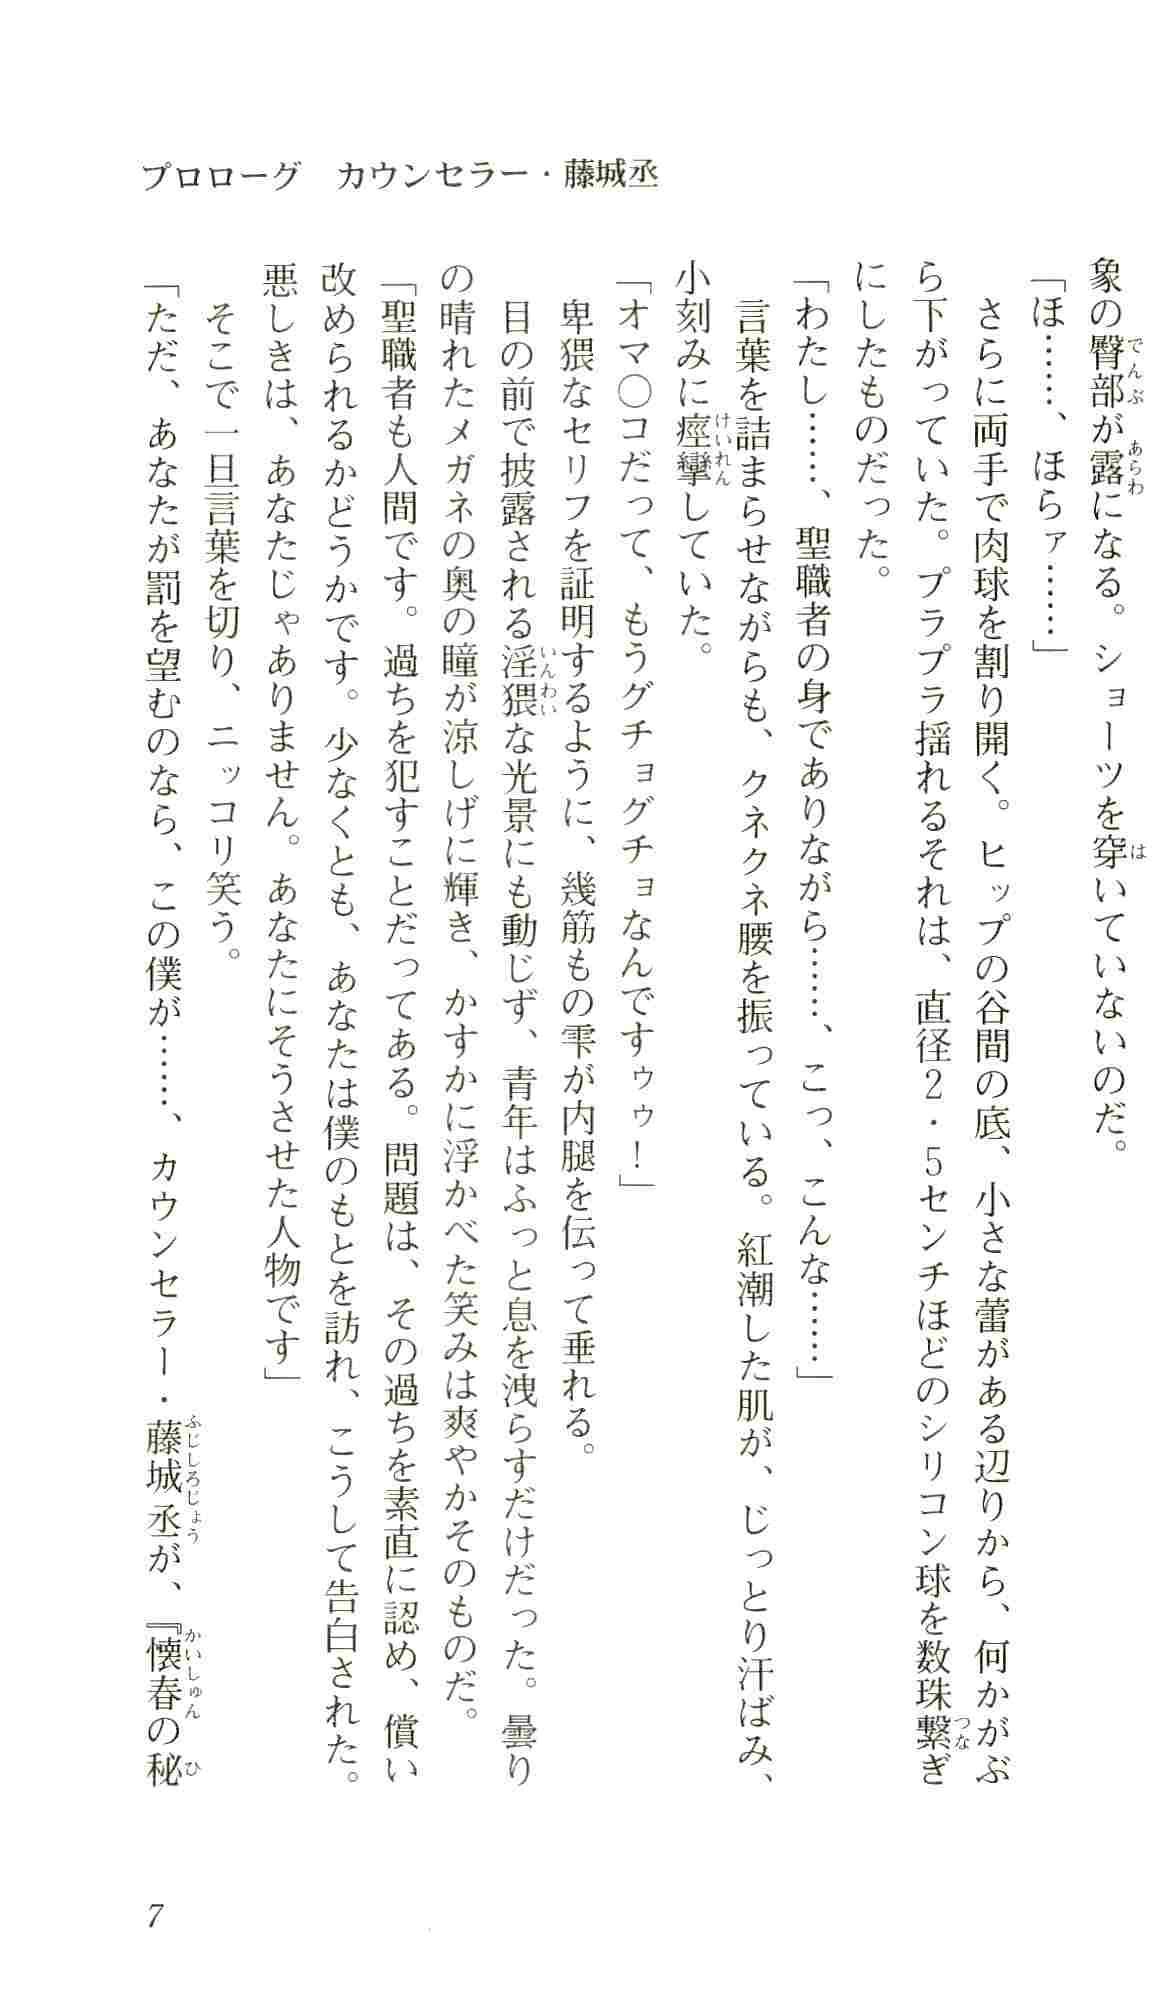 プロローグ　カウンセラー・藤城丞
象の臀部が露になる。ショーツを穿いていないのだ。
「ほ……、ほらァ……」
さらに両手で肉球を割り開く。ヒップの谷間の底、小さな蕾がある辺りから、何かがぶ
ら下がっていた。プラプラ揺れるそれは、直径２・５センチほどのシリコン球を数珠繋ぎ
にしたものだった。
「わたし……、聖職者の身でありながら……、こっ、こんな……」
言葉を詰まらせながらも、クネクネ腰を振っている。紅潮した肌が、じっとり汗ばみ、
小刻みに痙攣していた。
「オマ○コだって、もうグチョグチョなんですゥゥ！」
卑猥なセリフを証明するように、幾筋もの雫が内腿を伝って垂れる。
目の前で披露される淫猥な光景にも動じず、青年はふっと息を洩らすだけだった。曇り
の晴れたメガネの奥の瞳が涼しげに輝き、かすかに浮かべた笑みは爽やかそのものだ。
「聖職者も人間です。過ちを犯すことだってある。問題は、その過ちを素直に認め、償い
改められるかどうかです。少なくとも、あなたは僕のもとを訪れ、こうして告白された。
悪しきは、あなたじゃありません。あなたにそうさせた人物です」
そこで一旦言葉を切り、ニッコリ笑う。
「ただ、あなたが罰を望むのなら、この僕が……、カウンセラー・藤城丞が、『懐春の秘
7